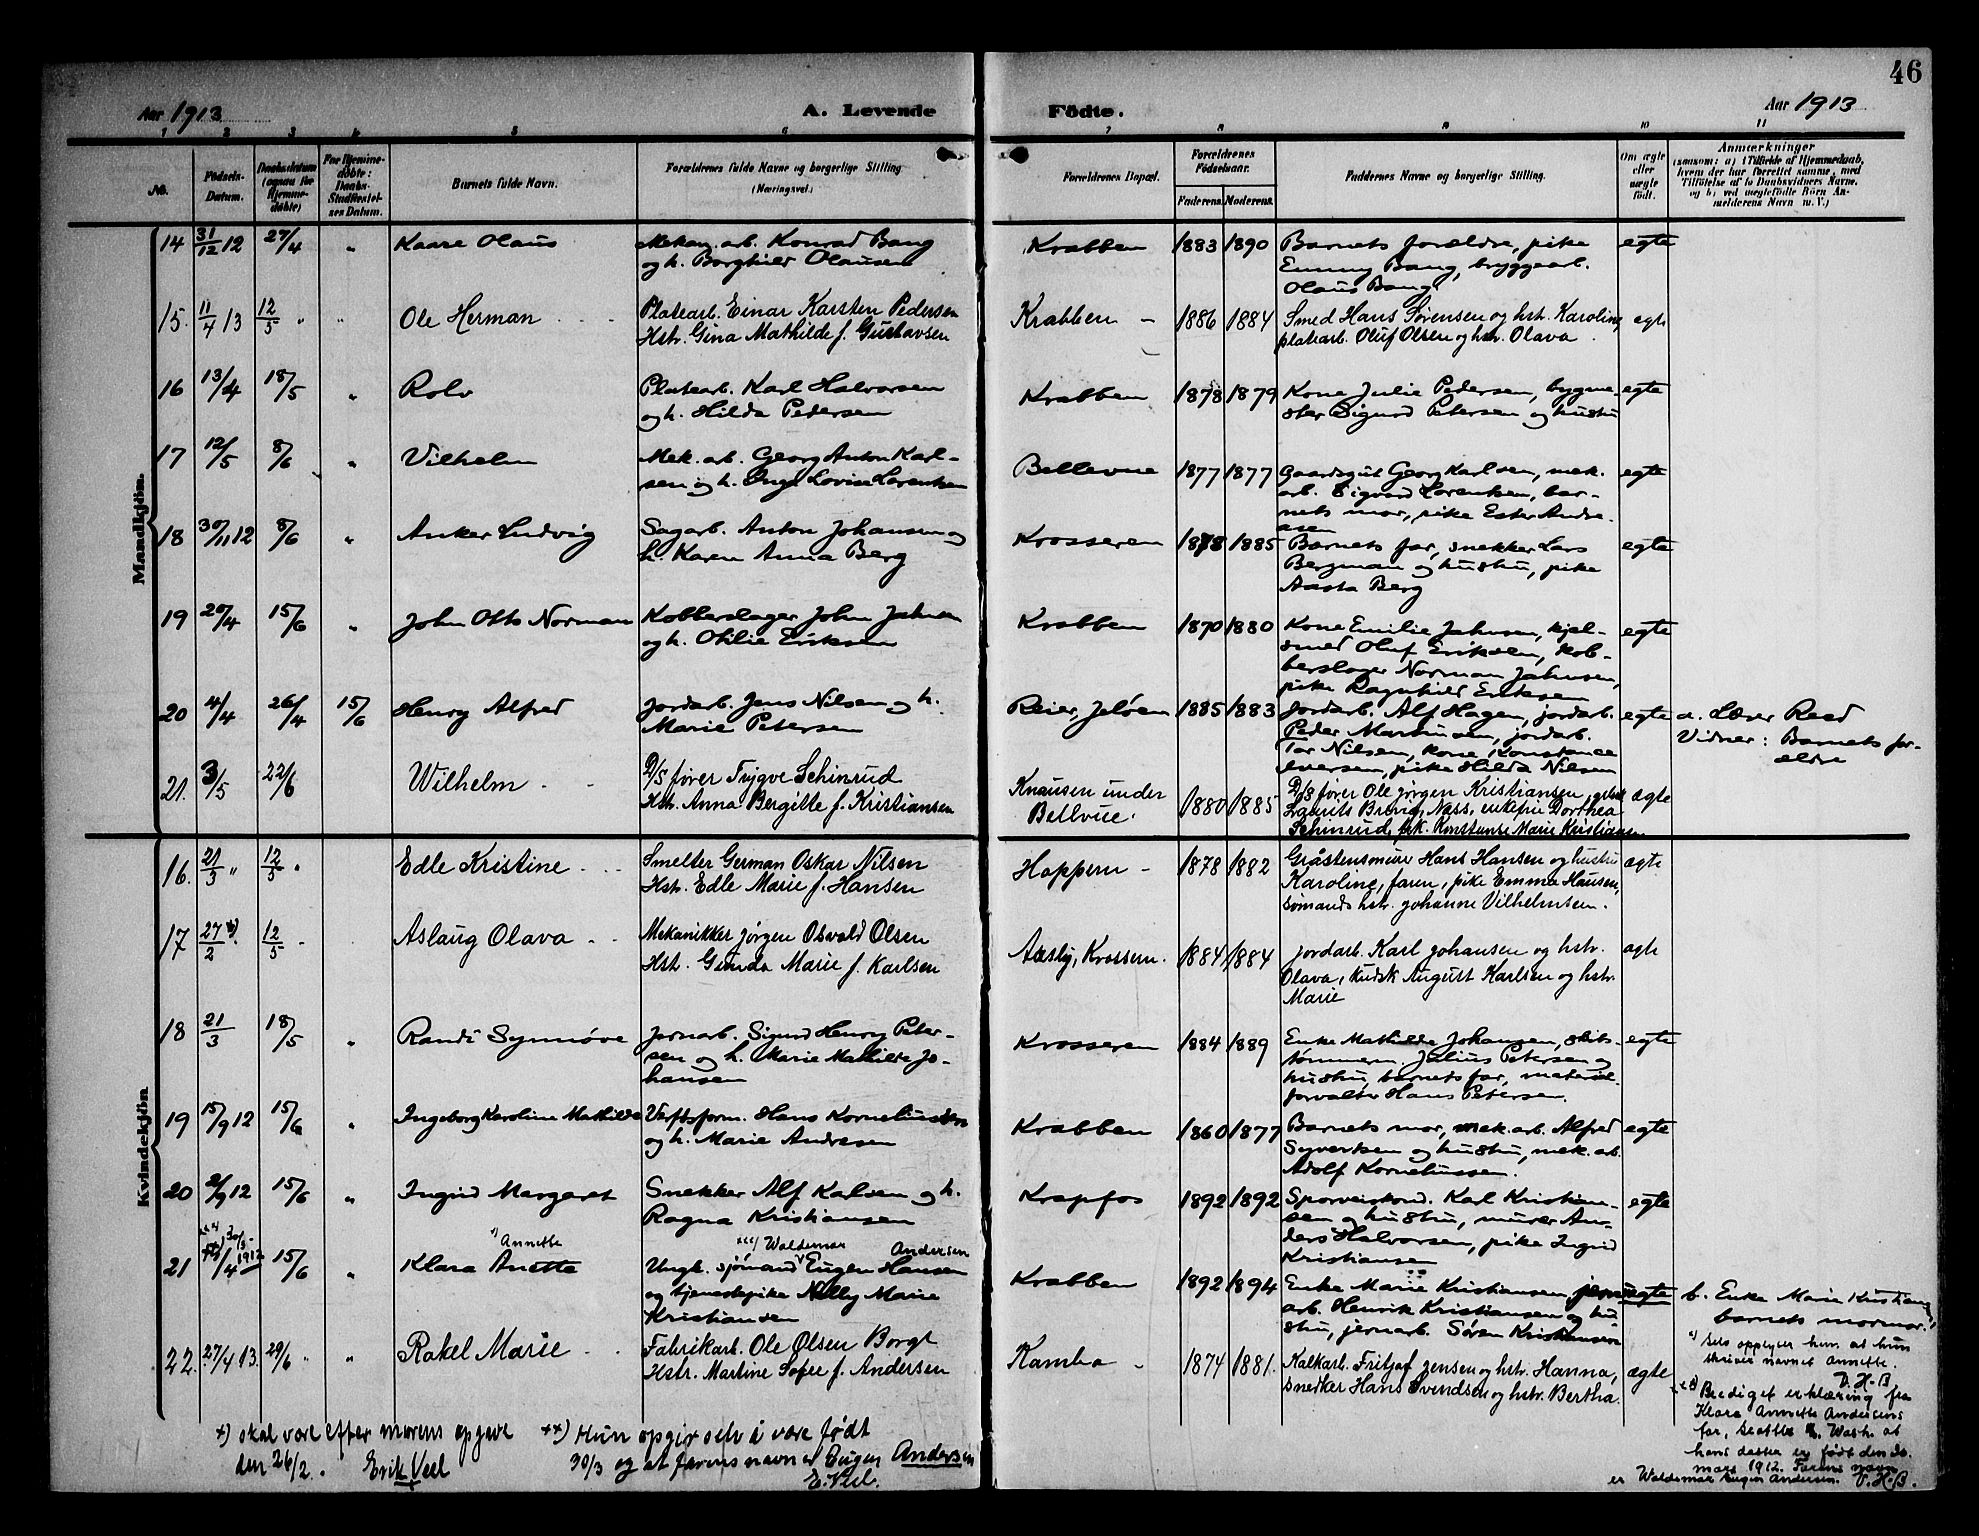 46
Aar 1913
A. Levende Födte.
Aar 1913
1 2 3 4 5 6 7 8 9 10 11
No.
Födsels-Datum.
Daabsdatum (ogsaa for Hjemme-döbte)
For Hjemme-döbte: Daabs-Stadfestel-ses Datum.
Barnets fulde Navn.
Forældrenes fulde Navne og borgerlige Stilling
(Næringsvei.)
Forældrenes Bopæl.
Forældrenes Födselsaar.
Faderens. Moderens.
Faddernes Navne og borgerlige Stilling.
Om ægte eller uægte født.
Anmerkninger
(saasom: a) i Tilfælde af Hjemmedaab, hvem der har forrettet samme, med Tilföielse af to Daabsvidners Navne, og b) ved uægtefödte Börn Anmelderens Navn m. V.)
Mandkjön.
14 31/12 12 27/4 " Kaare Olaus
Mekan. arb. Konrad Bang
og h. Borghild Olausen
Krabben 1883 1890
Barnets forældre, pike
Emmy Bang, bryggearb.
Olaus Bang
egte
15. 11/4 13 12/5 " " Ole Herman
Platearb. Einar Karsten Pedersen
Hstr. Gina Mathilde f. Gustavsen
Krabben - 1886 1884
Smed Hans Sørensen og hstr. Karoline
platearb. Oluf Olsen og hstr. Olava
egte
16 13/4 18/5 " Rolv
Platearb. Karl Halvorsen
og h. Hilda Pedersen
Krabben 1878 1879
Kone Julie Pedersen, bygme-
ster Sigurd Petersen og hustru
egte
17 12/5 8/6 " Vilhelm
Mek. arb. Georg Anton Karl-
sen og h. Inga Lovise Lorentsen
Bellevue 1877 1877
Gaardsgut Georg Karlsen, mek.
arb. Sigvard Lorentsen, bar-
nets mor, pike Ester Andre-
asen
egte
18 30/11 12 8/6 " Anker Ludvig
Sagarb. Anton Johansen og
h. Karen Anna Berg
Krosseren 1878 1885
Barnets far, snekker Lars
Bergman og hustru, pike
Aasta Berg
egte
19 20/4 15/6 " John Otto Norman
Kobberslager John Jahnsen
og h. Othilie Eriksen
Krabben 1870 1880
Kone Emilie Jahnsen, kjel-
smed Oluf Eriksen, kob-
berslager Norman Jahnsen,
pike Ragnhild Eriksen
egte
20 4/4 26/4 15/6 Henry Alfred
Jordarb. Jens Nilsen og h.
Marie Petersen
Reier, Jeløen 1885 1883
Jordarb. Alf Hagen, jordarb.
Peder Martinsen, jordarb.
Tor Nilsen, kone Konstance
Iversen, pike Hilda Nilsen
egte
a. Lærer Reed
Vidner: Barnets for-
ældre
21. 3/5 22/6 Wilhelm
D/S fører Trygve Schinrud
Hstr. Anna Bergitte f. Kristiansen
Knausen under
Bellvue. 1880 1885
D/S fører Ole Jørgen Kristiansen,
Laurits Brevig, Næss, enkefru Dorthea
Schinrud, frk. Konstanse Marie Kristiansen
ægte
Kvindekjön
16. 21/3 " 12/5 " Edle Kristine
Smelter German Oskar Nilsen
Hstr. Edle Marie f. Hansen
Hoppern - 1878 1882
Gråstensmurer Hans Hansen og hustru
Karoline, faren, pike Emma Hansen,
sømands hstr. Johanne Vilhelmsen.
ægte
17 27/2 x) 12/5 Aslaug Olava
Mekanikker Jørgen Osvald Olsen
Hstr. Gunda Marie f. Karlsen
Aasly, Krossern. 1884 1884
Jordarb. Karl Johansen og hstr.
Olava, Kudsk August Karlsen og hstr.
Marie
ægte
18 21/3 18/5 " Randi Synnøve
Jernarb. Sigurd Henry Peter-
sen og h. Marie Mathilde Jo-
hansen
Krosseren 1884 1889
Enke Mathilde Johansen, skibs-
tømmerm. Julius Petersen og
hustru, barnets far, material-
forvalter Hans Petersen.
egte
19 15/9 12 15/6 " Ingeborg Karoline Mathilde
Verftsform. Hans Korneliussen
og h. Marie Andresen
Krabben 1860 1877
Barnets mor, mek. arb. Alfred
Syvertsen og hustru, mek. arb.
Adolf Korneliussen.
egte
20 2/9 12 15/6 " Ingrid Margaret
Snekker Alf Karlsen og h.
Ragna Kristiansen
Krapfos 1892 1892
Sporveiskond. Karl Kristian-
sen og hustru, murer An-
ders Halvorsen, pike Ingrid
Kristiansen
egte
xxx) 30/3
21 /4 1912 15/6 " Klara Anette
*) Annette
xxx) Waldemar Andersen
Ungk. sjømand Eugen Hansen
og tjenestepike Nelly Marie
Kristiansen
Krabben 1892 1894
Enke Marie Kristiansen, jern-
arb. Henrik Kristiansen og hu-
stru, jernarb. Søren Kristiansen
uegte
b. Enke Marie Kristiansen,
barnets mormor.
*) Selv opplyser hun at hun
skriver navnet Annette.
V. H. B.
22. 27/4 13. 29/6 " " Rakel Marie
Fabrikarb. Ole Olsen Borgt
Hstr. Martine Sofie f. Andersen
Kambo - 1874 1881.
Kalkarb. Fritjof Jensen og hstr. Hanna,
snedker Hans Svendsen og hstr. Bertha.
ægte
xxx) Beediget erklæring fra
Klara Annette Andersens
far, Seattle, Wash. at
hans datter er født den 30.
mars 1912. Farens navn
er Waldemar Eugen Andersen. V. H. B.
x) skal være efter morens opgave
den 26/2. Erik Veel
xx) Hun opgir selv å være født
30/3 og at farens navn er Eugen Andersen
E. Veel.